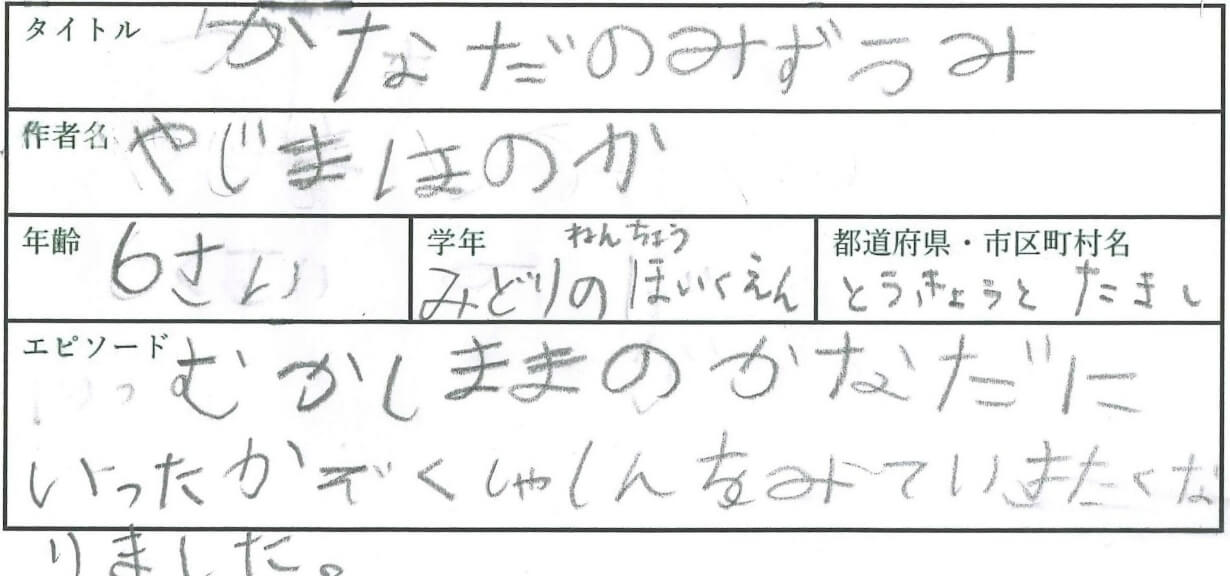 タイトル かなだのみずうみ
作者名 やじまほのか
年齢 6さい 学年 ねんちょう みどりの ほいくえん 都道府県・市区町村名 とうきょうと たまし
エピソード むかしままのかなだに
いったかぞくしゃしんをみていきたくな
りました。